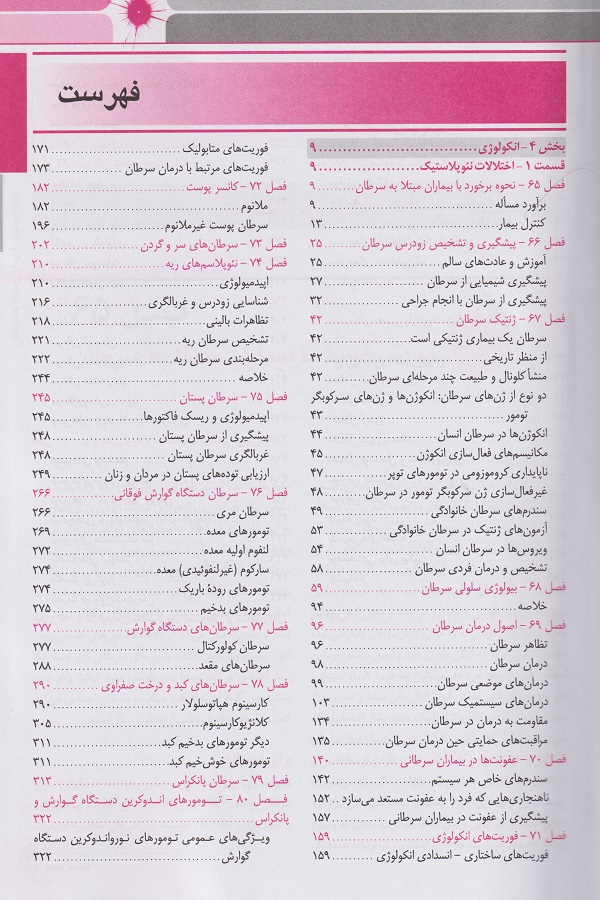 فهرست
بخش ۴ – انکولوژی ........ ۹
قسمت ۱ – اختلالات نئوپلاستیک ........ ۹
فصل ۶۵ – نحوه برخورد با بیماران مبتلا به سرطان ........ ۹
برآورد مسأله ........ ۹
کنترل بیمار ........ ۱۳
فصل ۶۶ – پیشگیری و تشخیص زودرس سرطان ........ ۲۵
آموزش و عادت‌های سالم ........ ۲۵
پیشگیری شیمیایی از سرطان ........ ۲۷
پیشگیری از سرطان با انجام جراحی ........ ۳۲
فصل ۶۷ – ژنتیک سرطان ........ ۴۲
سرطان یک بیماری ژنتیکی است ........ ۴۲
از منظر تاریخی ........ ۴۲
منشأ کلونال و طبیعت چند مرحله‌ای سرطان ........ ۴۲
دو نوع از ژن‌های سرطان: انکوژن‌ها و ژن‌های سرکوبگر
تومور ........ ۴۳
انکوژن‌ها در سرطان انسان ........ ۴۴
مکانیسم‌های فعال‌سازی انکوژن ........ ۴۵
ناپایداری کروموزومی در تومورهای توپر ........ ۴۷
غیرفعال‌سازی ژن سرکوبگر تومور در سرطان ........ ۴۸
سندرم‌های سرطان خانوادگی ........ ۴۹
آزمون‌های ژنتیک در سرطان خانوادگی ........ ۵۳
ویروس‌ها در سرطان انسان ........ ۵۴
تشخیص و درمان فردی سرطان ........ ۵۸
فصل ۶۸ – بیولوژی سلولی سرطان ........ ۵۹
خلاصه ........ ۹۴
فصل ۶۹ – اصول درمان سرطان ........ ۹۶
تظاهر سرطان ........ ۹۶
درمان سرطان ........ ۹۸
درمان‌های موضعی سرطان ........ ۹۹
درمان‌های سیستمیک سرطان ........ ۱۰۳
مقاومت به درمان در سرطان ........ ۱۳۴
مراقبت‌های حمایتی حین درمان سرطان ........ ۱۳۵
فصل ۷۰ – عفونت‌ها در بیماران سرطانی ........ ۱۴۰
سندرم‌های خاص هر سیستم ........ ۱۴۲
ناهنجاری‌هایی که فرد را به عفونت مستعد می‌سازد ........ ۱۵۲
پیشگیری از عفونت در بیماران سرطانی ........ ۱۵۷
فصل ۷۱ – فوریت‌های انکولوژی ........ ۱۵۹
فوریت‌های ساختاری – انسدادی انکولوژی ........ ۱۵۹
فوریت‌های متابولیک ........ ۱۷۱
فوریت‌های مرتبط با درمان سرطان ........ ۱۷۳
فصل ۷۲ – کانسر پوست ........ ۱۸۲
ملانوم ........ ۱۸۲
سرطان پوست غیرملانوم ........ ۱۹۶
فصل ۷۳ – سرطان‌های سر و گردن ........ ۲۰۲
فصل ۷۴ – نئوپلاسم‌های ریه ........ ۲۱۰
اپیدمیولوژی ........ ۲۱۰
شناسایی زودرس و غربالگری ........ ۲۱۶
تظاهرات بالینی ........ ۲۱۸
تشخیص سرطان ریه ........ ۲۲۱
مرحله‌بندی سرطان ریه ........ ۲۲۲
خلاصه ........ ۲۴۴
فصل ۷۵ – سرطان پستان ........ ۲۴۵
اپیدمیولوژی و ریسک فاکتورها ........ ۲۴۵
پیشگیری از سرطان پستان ........ ۲۴۸
غربالگری سرطان پستان ........ ۲۴۸
ارزیابی توده‌های پستان در مردان و زنان ........ ۲۴۹
فصل ۷۶ – سرطان دستگاه گوارش فوقانی ........ ۲۶۶
سرطان مری ........ ۲۶۶
تومورهای معده ........ ۲۶۹
لنفوم اولیه معده ........ ۲۷۲
سارکوم (غیرلنفوئیدی) معده ........ ۲۷۴
تومورهای رودهٔ باریک ........ ۲۷۴
تومورهای بدخیم ........ ۲۷۵
فصل ۷۷ – سرطان‌های دستگاه گوارش ........ ۲۷۷
سرطان کولورکتال ........ ۲۷۷
سرطان‌های مقعد ........ ۲۸۸
فصل ۷۸ – سرطان‌های کبد و درخت صفراوی ........ ۲۹۰
کارسینوم هپاتوسلولار ........ ۲۹۰
کلانژیوکارسینوم ........ ۳۰۵
دیگر تومورهای بدخیم کبد ........ ۳۱۱
تومورهای خوش‌خیم کبد ........ ۳۱۱
فصل ۷۹ – سرطان پانکراس ........ ۳۱۳
فصل ۸۰ – تومورهای اندوکرین دستگاه گوارش و
پانکراس ........ ۳۲۲
ویژگی‌های عمومی تومورهای نورواندوکرین دستگاه
گوارش ........ ۳۲۲